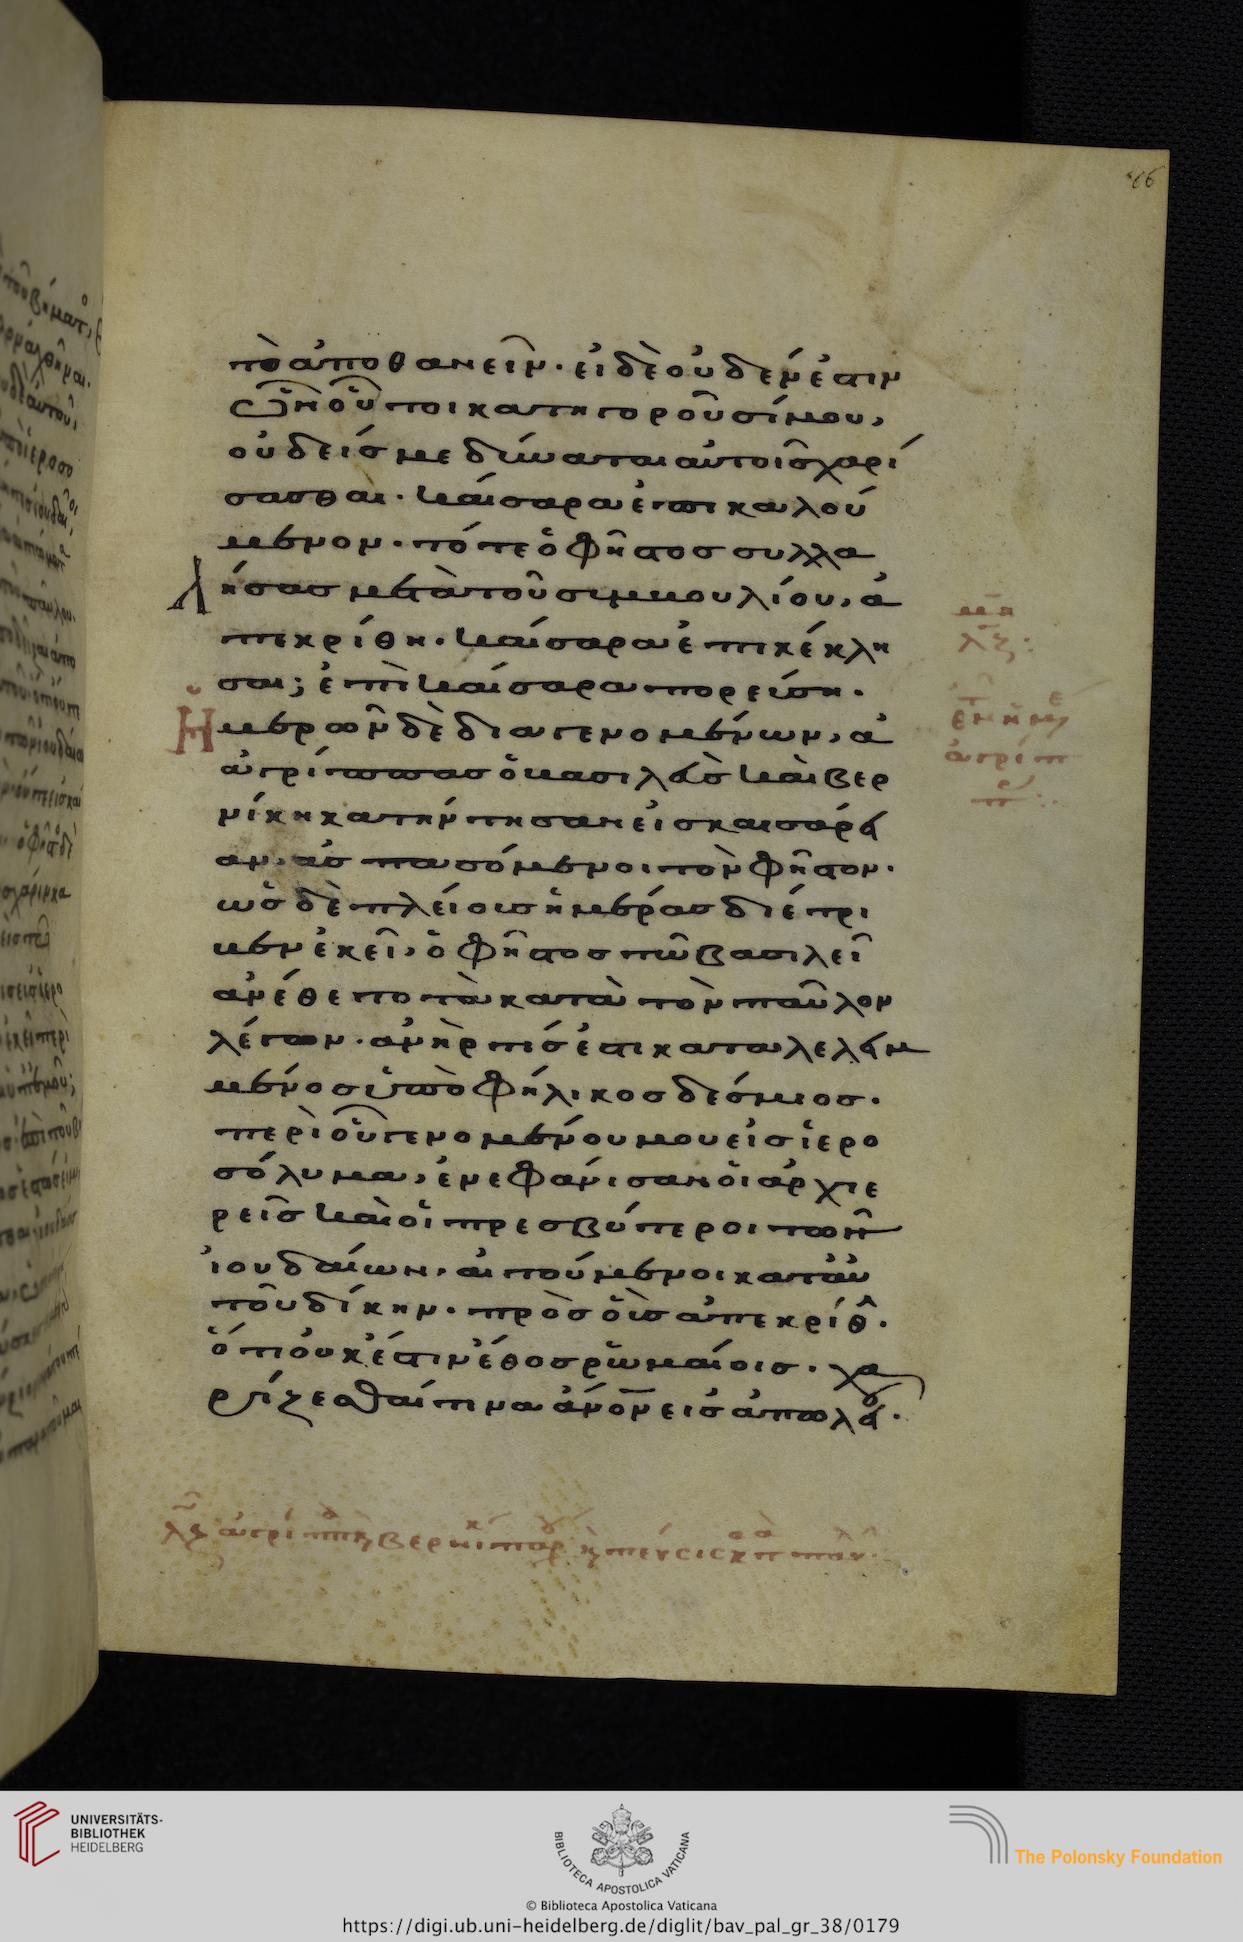 τὸ ἀποθανεῖν· εἰ δὲ οὐδέν ἐστιν
ὧν οὗτοι κατηγοροῦσί μου,
οὐδείς με δύναται αὐτοῖς χαρί
σασθαι· καίσαρα ἐπικαλοῦ
μενον· τότε ὁ φῆστος συλλα
λήσας μετὰ τοῦ συμβουλίου, ἀ
πεκρίθη· καίσαρα ἐπικέκλη
σαι; ἐπὶ καίσαρα πορεύση·
Ἡμερῶν δὲ διαγενομένων, ἀ
ἀγρίππας ὁ βασιλεὺς καὶ βερ
νίκη κατήντησαν εἰς καισάρει
αν· ἀσπασόμενοι τὸν φῆστον·
ὡς δὲ πλείους ἡμέρας διέτρι
βεν ἐκεῖ, ὁ φῆστος τῶ βασιλεῖ
ἀνέθετο τὰ κατὰ τὸν παῦλον
λέγων· ἀνήρ τίς ἐστι καταλελειμ
μένος ὑπὸ φήλικος δέσμιος·
περὶ οὗ γενομένου μου εἰς ἱερο
σόλυμα, ἐνεφάνισαν οἱ ἀρχιε
ρεῖς καὶ οἱ πρεσβύτεροι τῶν
ἰουδαίων, αἰτούμενοι κατ᾽ αὐ
τοῦ δίκην· πρὸς οὓς ἀπεκρίθ·
ὅτι οὐκ ἔστιν ἔθος ῥωμαίοις· χα
ρίζεσθαί τινα ἄνον εἰς ἀπωλ·
λζ
ἀγρίπ
UNIVERSITÄTS-
BIBLIOTHEK
HEIDELBERG
BIBLIOTECA APOSTOLICA VATICANA
© Biblioteca Apostolica Vaticana
The Polonsky Foundation
https://digi.ub.uni-heidelberg.de/diglit/bav_pal_gr_38/0179